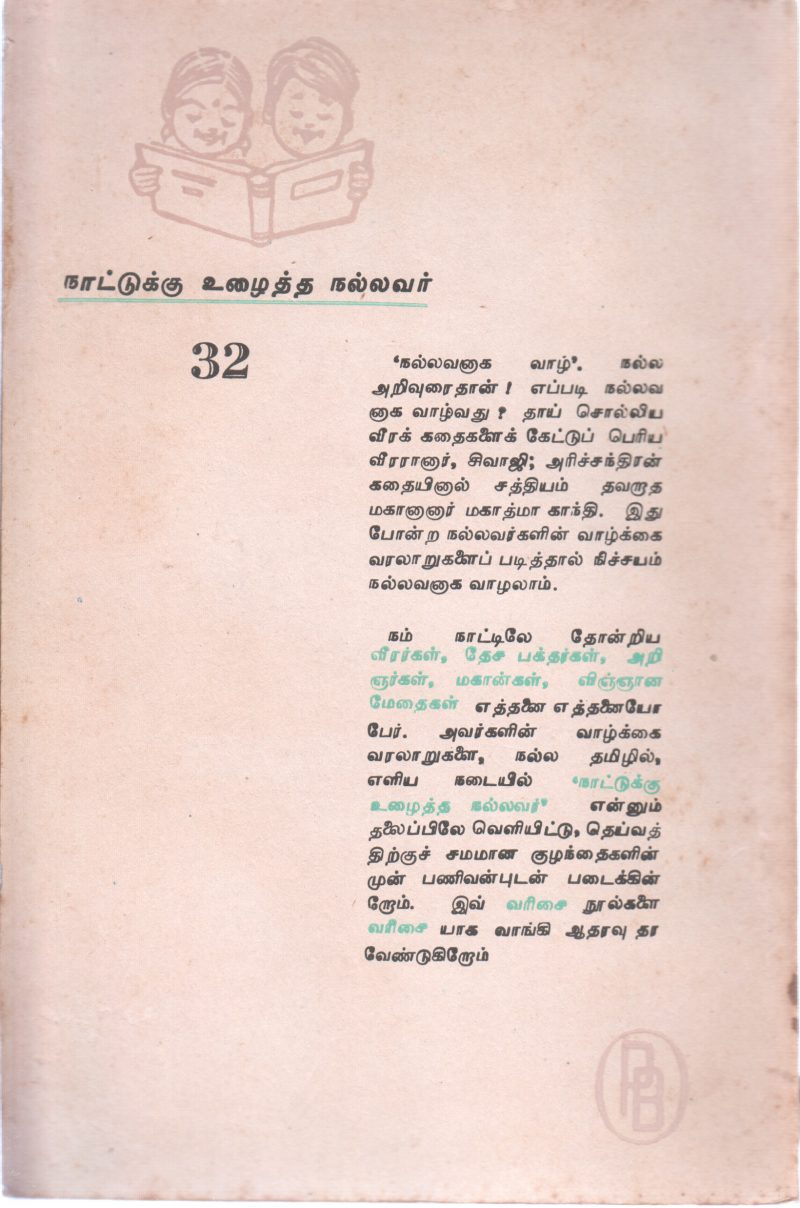 நாட்டுக்கு உழைத்த நல்லவர்
32
‘நல்லவனாக வாழ்’. நல்ல
அறிவுரைதான் ! எப்படி நல்லவ
னாக வாழ்வது ? தாய் சொல்லிய
வீரக் கதைகளைக் கேட்டுப் பெரிய
வீரரானார், சிவாஜி; அரிச்சந்திரன்
கதையினால் சத்தியம் தவறாத
மகானானார் மகாத்மா காந்தி. இது
போன்ற நல்லவர்களின் வாழ்க்கை
வரலாறுகளைப் படித்தால் நிச்சயம்
நல்லவனாக வாழலாம்.
நம் நாட்டிலே தோன்றிய
வீரர்கள், தேச பக்தர்கள், அறி
ஞர்கள், மகான்கள், விஞ்ஞான
மேதைகள் எத்தனை எத்தனையோ
பேர். அவர்களின் வாழ்க்கை
வரலாறுகளை, நல்ல தமிழில்,
எளிய நடையில் ‘நாட்டுக்கு
உழைத்த நல்லவர்’ என்னும்
தலைப்பிலே வெளியிட்டு, தெய்வத்
திற்குச் சமமான குழந்தைகளின்
முன் பணிவன்புடன் படைக்கின்
றோம். இவ் வரிசை நூல்களை
வரிசை யாக வாங்கி ஆதரவு தர
வேண்டுகிறோம்
PB